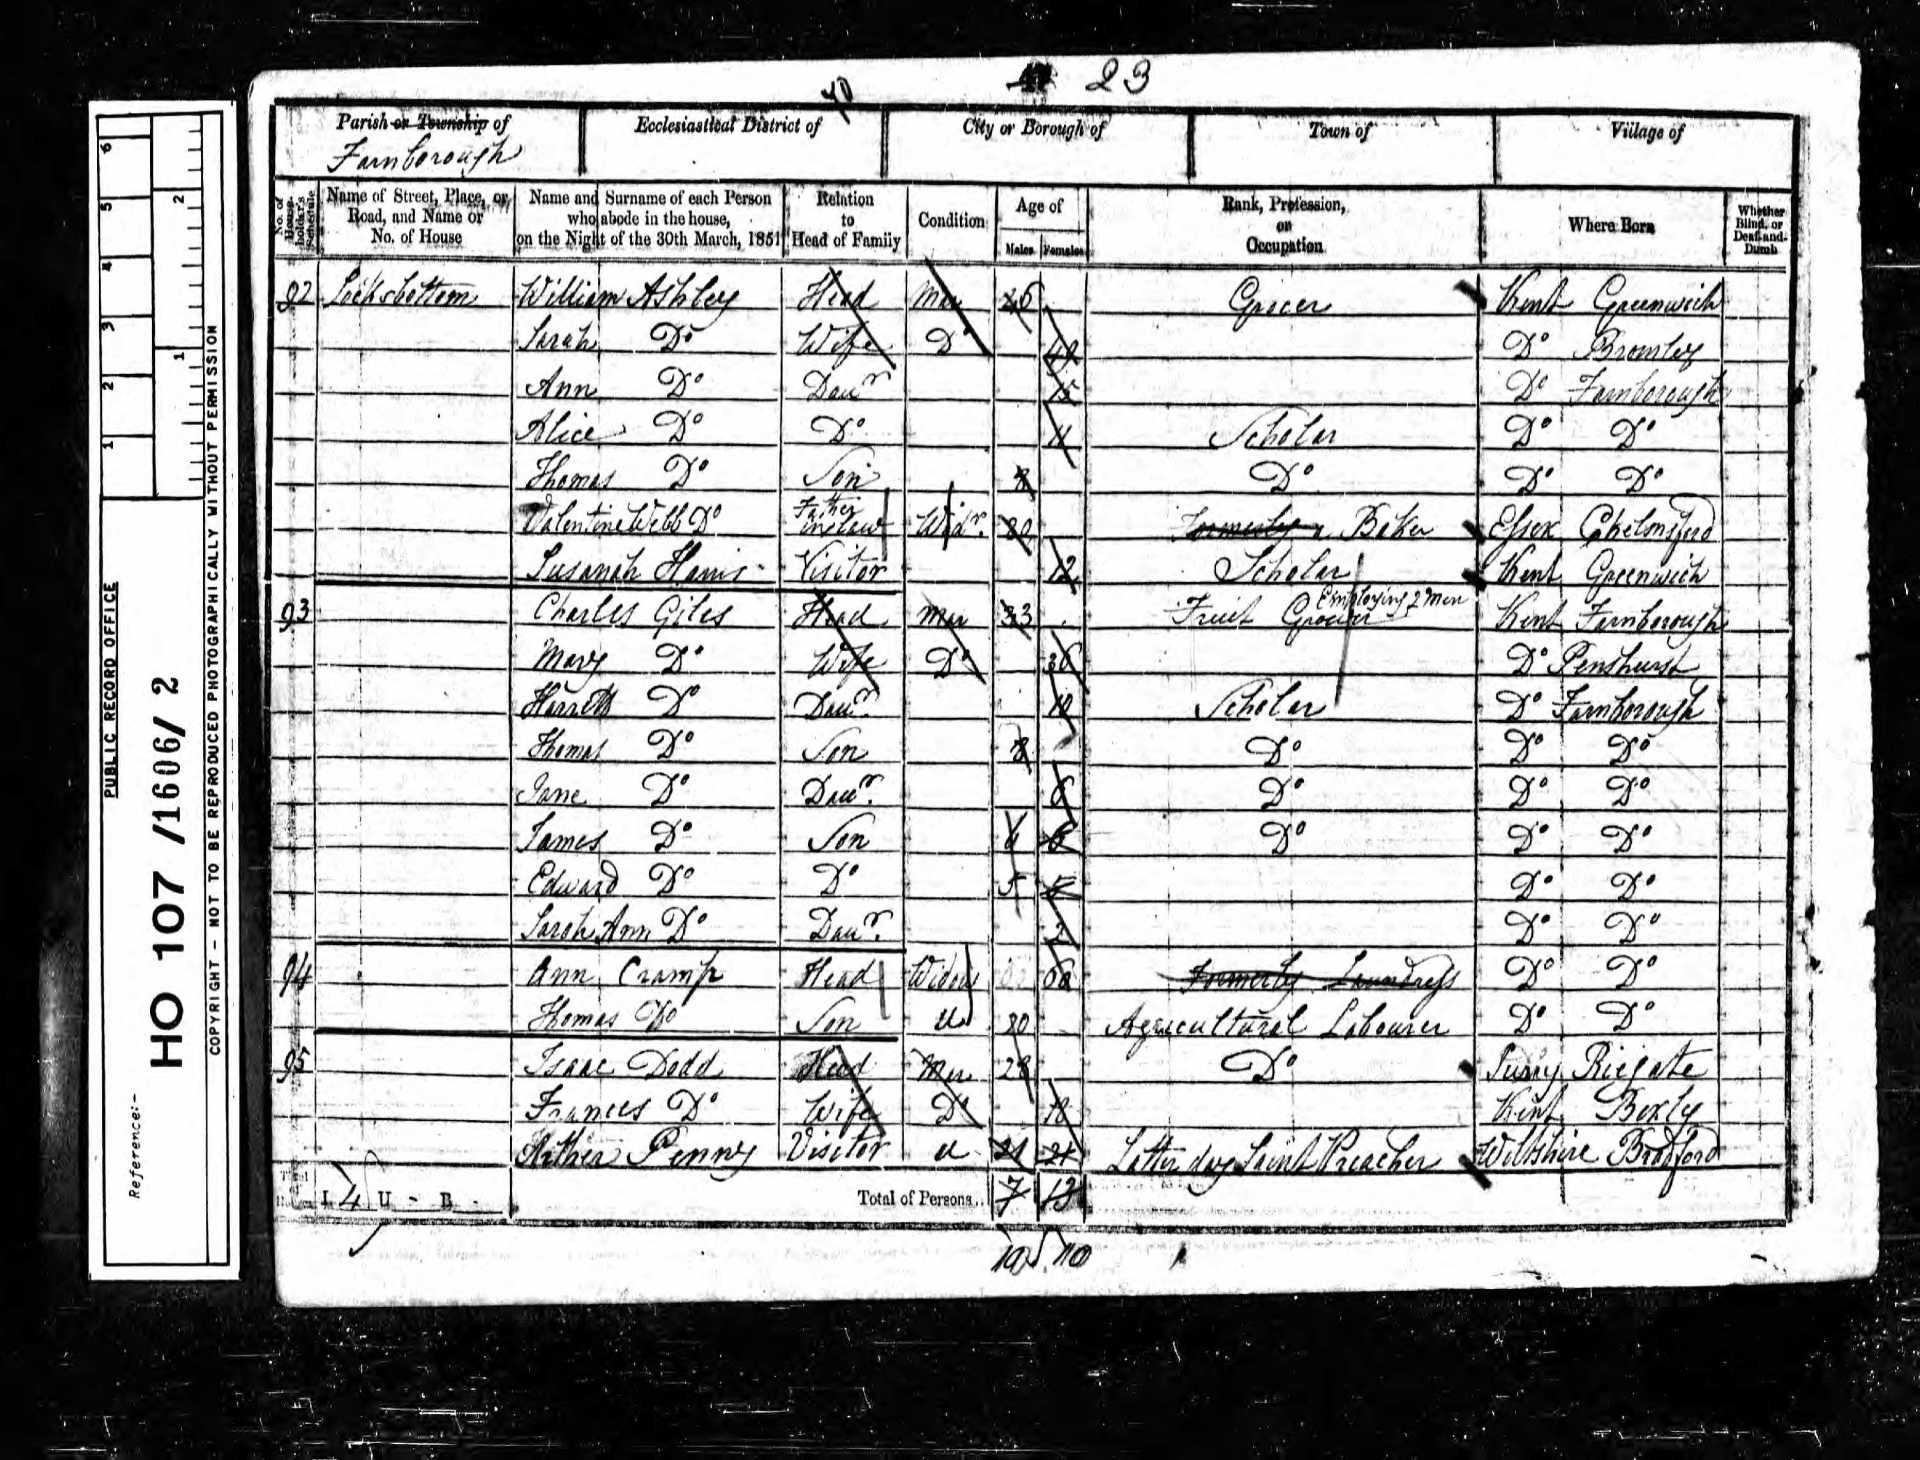 23
Parish or Township of
Farnborough
Ecclesiastical District of
City or Borough of
Town of
Village of
No. of House-holder's Schedule
Name of Street, Place, or Road, and Name or No. of House
Name and Surname of each Person who abode in the house, on the Night of the 30th March, 1851
Relation to Head of Family
Condition
Age of
Males
Females
Rank, Profession, or Occupation
Where Born
Whether Blind, or Deaf-and-Dumb
92 Locksbottom William Ashley Head Mar 46 Grocer Kent Greenwich
Sarah Do Wife Do 49 Do Bromley
Ann Do Daur 15 Do Farnborough
Alice Do Do 11 Scholar Do Do
Thomas Do Son 8 Do Do Do
Valentine Webb Do Father in law Widr. 80 Formerly a Baker Essex Chelmsford
Susanah Harris Visitor 12 Scholar Kent Greenwich
93 Charles Giles Head Mar 33 Fruit Grower Employing 2 men Kent Farnborough
Mary Do Wife Do 36 Do Penshurst
Harrett Do Daur. 10 Scholar Do Farnborough
Thomas Do Son 8 Do Do Do
Jane Do Daur. 8 Do Do Do
James Do Son 6 6 Do Do Do
Edward Do Do 5 5 Do Do
Sarah Ann Do Daur. 2 Do Do
94 Ann Cramp Head Widow 60 Formerly Laundress Do Do
Thomas Do Son U 20 Agricultural Labourer Do Do
95 Isaac Dodd Head Mar 28 Do Surry Riegate
Frances Do Wife Do 18 Kent Bexly
Arther Penny Visitor U 21 21 Latter day Saint Preacher Wiltshire Bradford
I 4 U - B -
Total of Persons...
7 13
10 10
PUBLIC RECORD OFFICE
Reference:-
HO 107 /1606/ 2
COPYRIGHT - NOT TO BE REPRODUCED PHOTOGRAPHICALLY WITHOUT PERMISSION
1
2
3
4
5
6
1
2